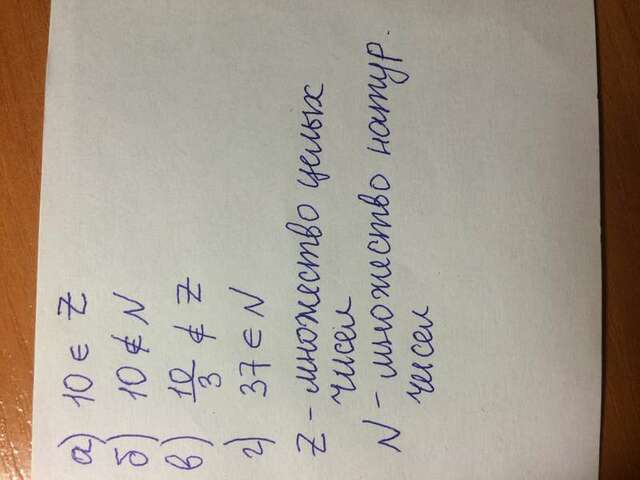 а) 10 ∈ Z
б) 10 ∉ N
в) 10/3 ∉ Z
г) 37 ∈ N
Z - множество целых
чисел
N - множество натур.
чисел